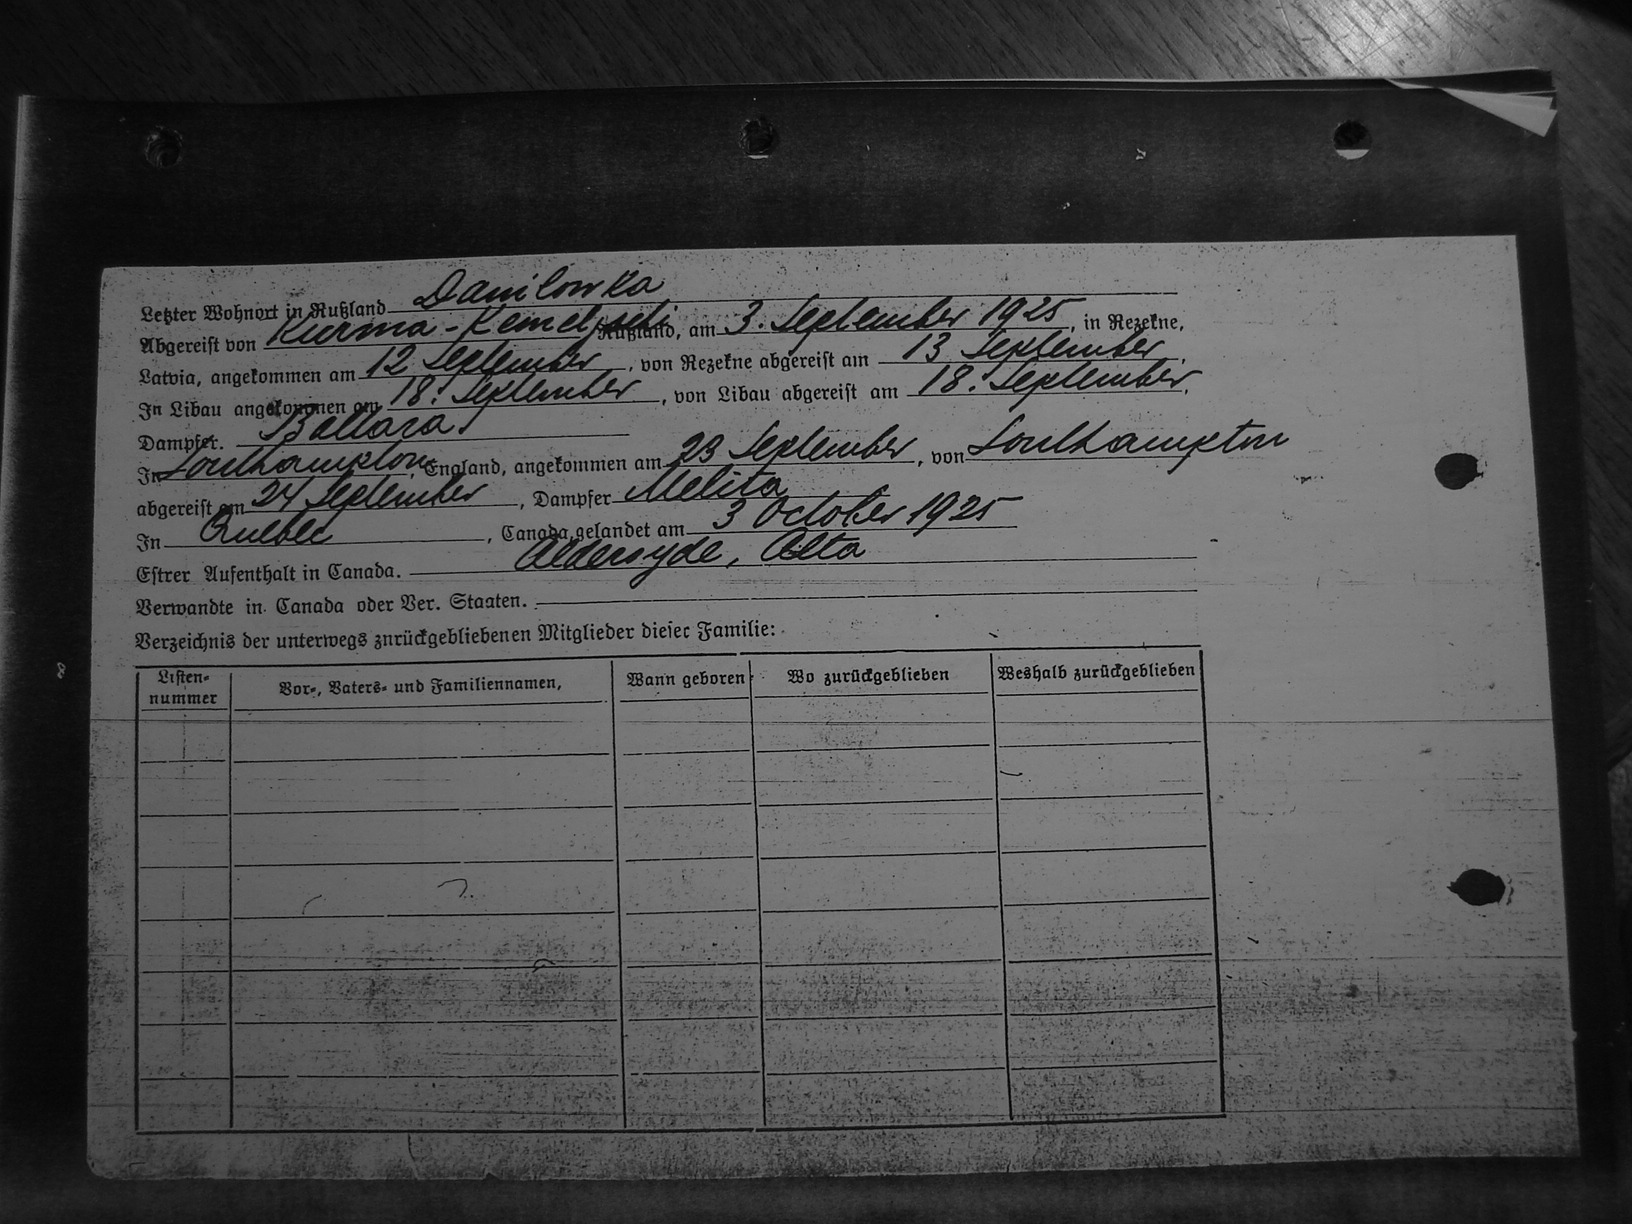 Letzter Wohnort in Rußland Danilowka
Abgereist von Kurma-Kemeltschi Rußland, am 3. September 1925, in Rezekne,
Latvia, angekommen am 12 September, von Rezekne abgereist am 13 September.
In Libau angekommen am 18. September, von Libau abgereist am 18. September.
Dampfer. Baltara.
In Southampton England, angekommen am 23 September, von Southampton
abgereist am 24 September, Dampfer Melita
In Quebec, Canada, gelandet am 3 October 1925
Estrer Aufenthalt in Canada. Aldersyde, Alta
Verwandte in Canada oder Ver. Staaten.
Verzeichnis der unterwegs znrückgebliebenen Mitglieder diesec Familie:
Listen-nummer Vor-, Vaters- und Familiennamen, Wann geboren Wo zurückgeblieben Weshalb zurückgeblieben